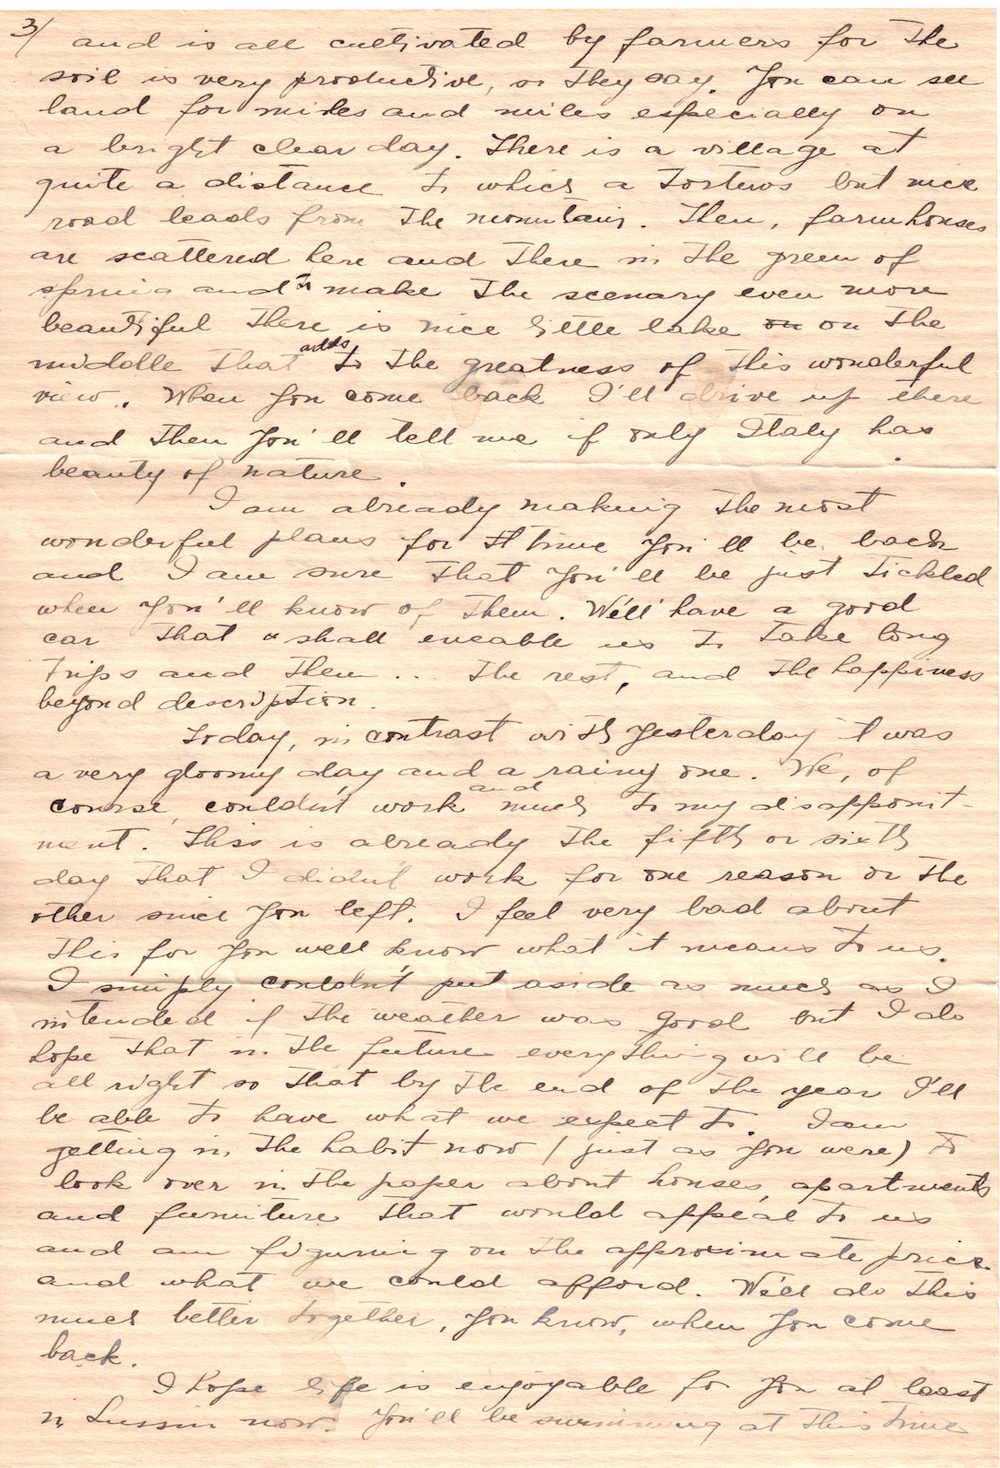 3/ and is all cultivated by farmers for the
soil is very productive, or they say. You can see
land for miles and miles especially on
a bright clear day. There is a village at
quite a distance to which a but nice
road leads from the mountain. Then, farmhouses
are scattered here and there in the green of
spring and to make the scenary even more
beautiful there is nice little lake on on the
middle that adds to the greatness of this wonderful
view. When you come back I'll drive up there
and then you'll tell me if only Italy has
beauty of nature.
I am already making the most
wonderful plans for tt time you'll be back
and I am sure that you'll be just tickled
when you'll know of them. We'll have a good
car that shall eneable us to take long
trips and then .. the rest, and the happiness
beyond description.
Today, in contrast with yesterday it was
a very gloomy day and a rainy one. We, of
course, couldn't work and much to my disappoint-
ment. This is already the fifth or sixth
day that I didn't work for one reason or the
other since you left. I feel very bad about
this for you well know what it means to us.
I simply couldn't put aside as much as I
intended if the weather was good but I do
hope that in the future everything will be
all right so that by the end of the year I'll
be able to have what we expect to. I am
getting in the habit now (just as you were) to
look over in the paper about houses, apartments
and furniture that would appeal to us
and am figuring on the approximate price
and what we could afford. We'll do this
much better together, you know, when you come
back.
I hope life is enjoyable for you at least
in Lussin now. You'll be swimming at this time